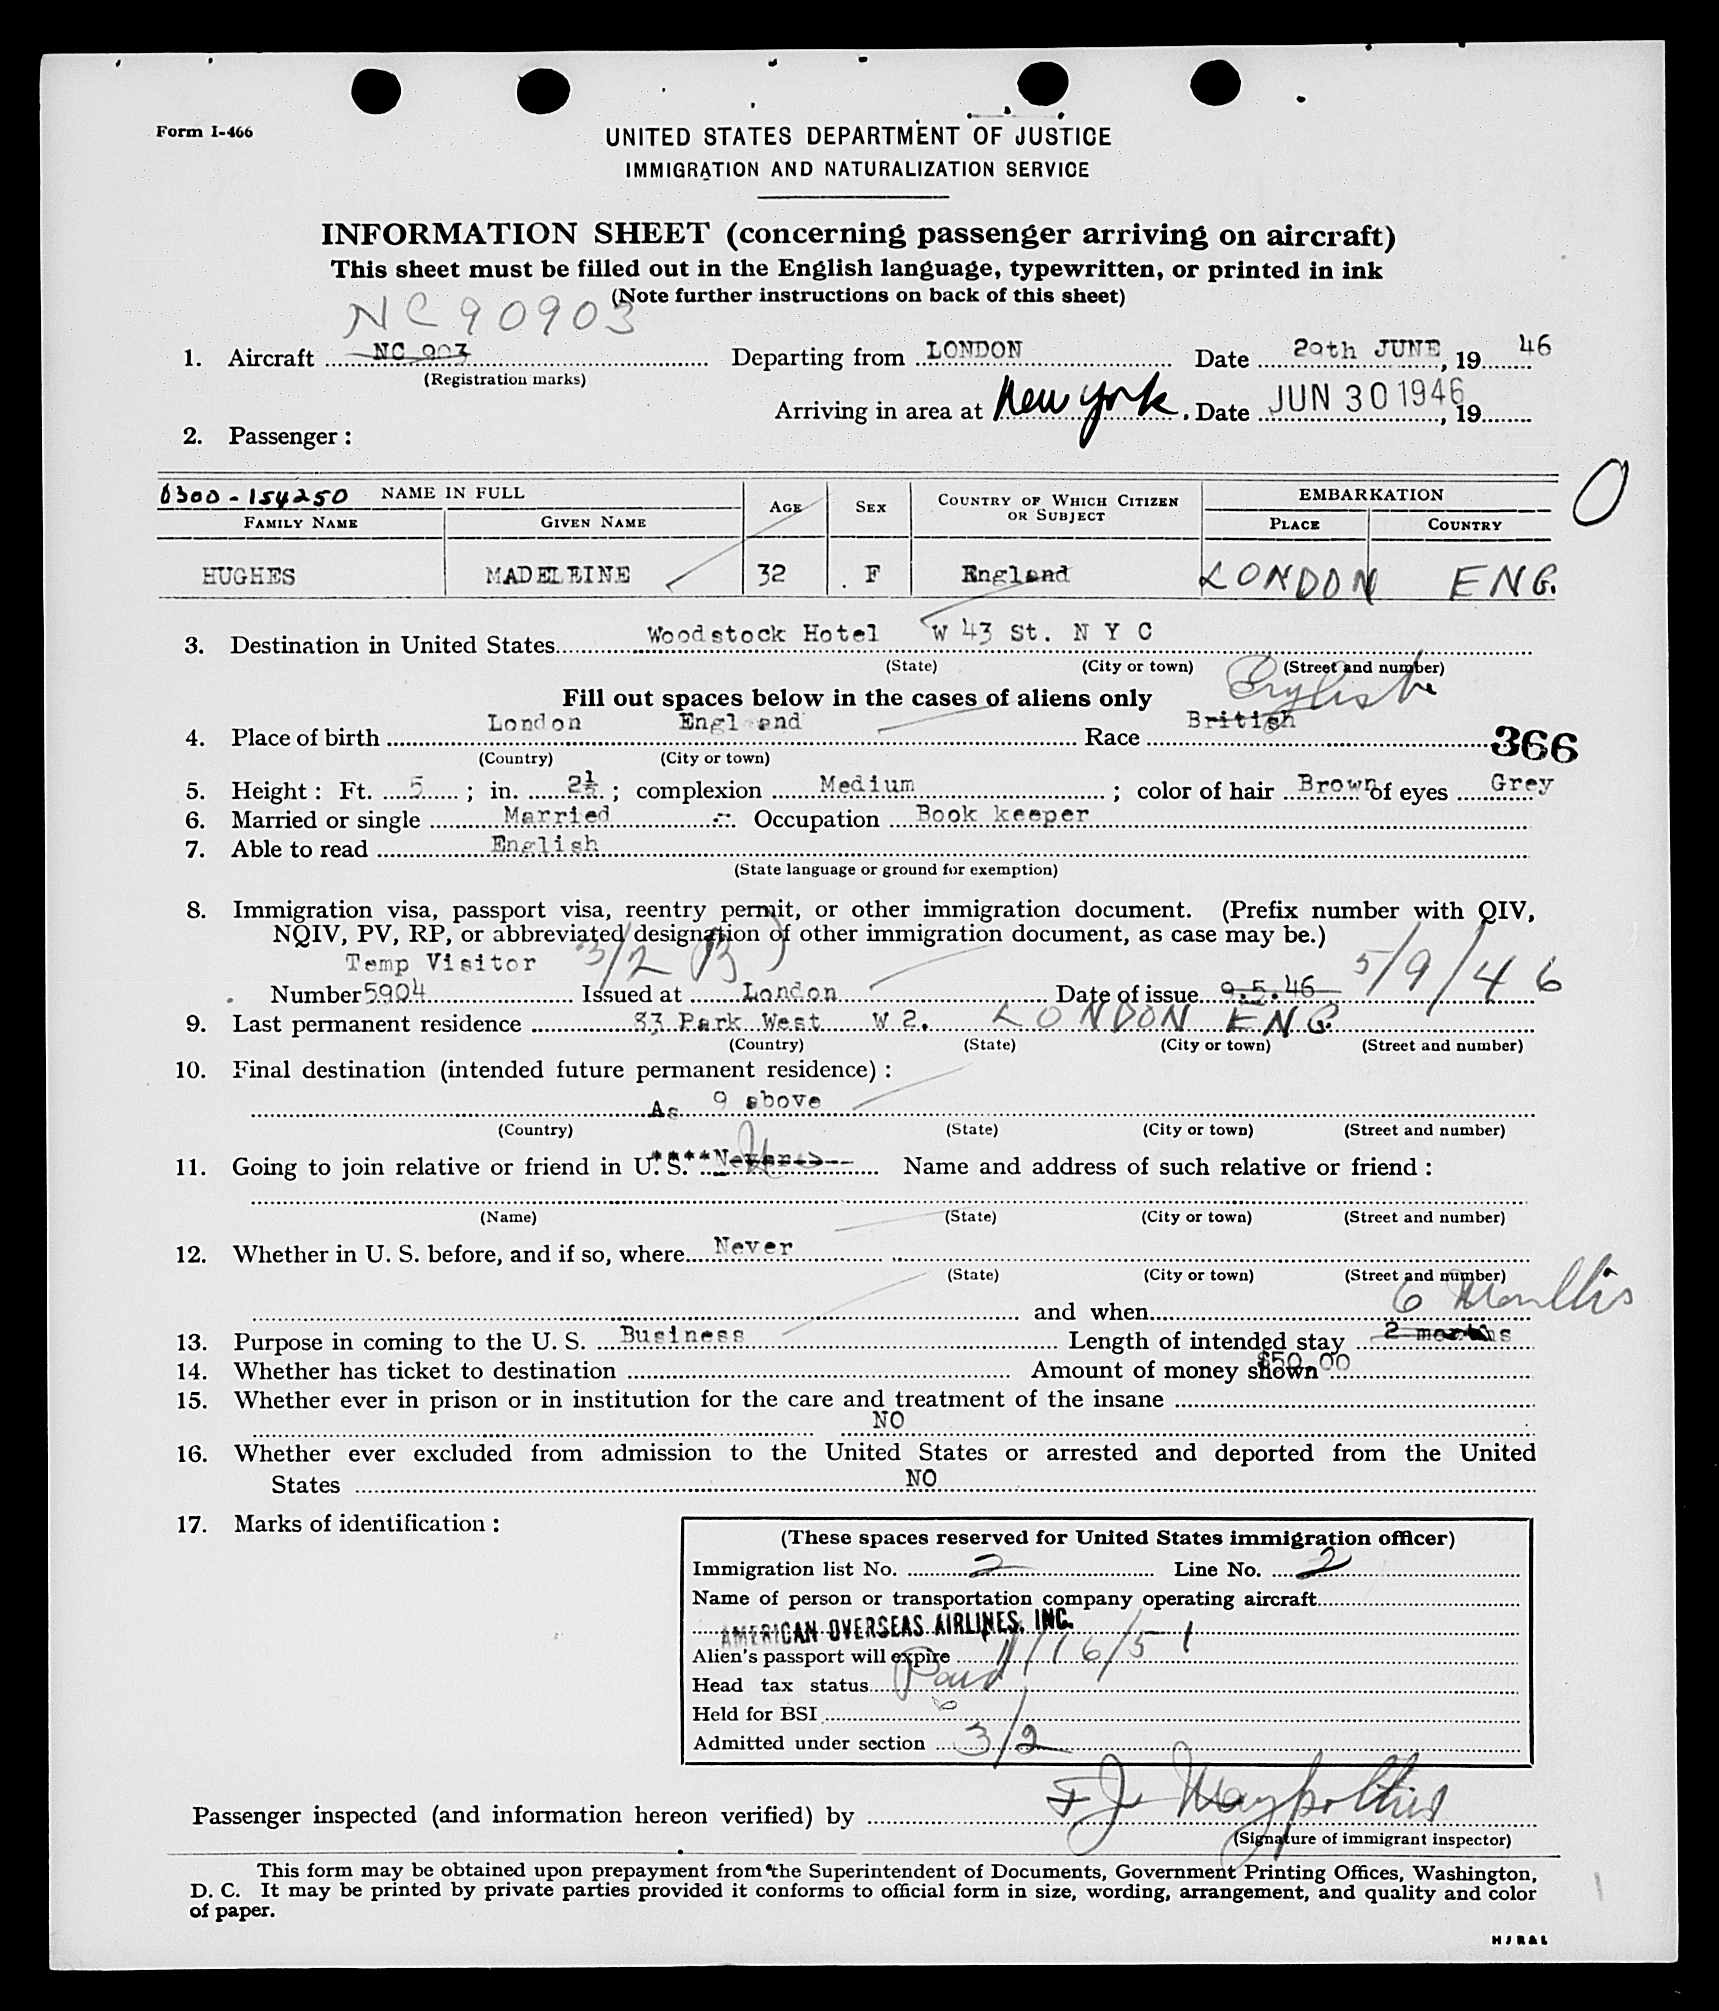 Form I-466
UNITED STATES DEPARTMENT OF JUSTICE
IMMIGRATION AND NATURALIZATION SERVICE
INFORMATION SHEET (concerning passenger arriving on aircraft)
This sheet must be filled out in the English language, typewritten, or printed in ink
(Note further instructions on back of this sheet)
NC90903
1. Aircraft NC 903 Departing from LONDON Date 29th JUNE, 19 46
(Registration marks)
Arriving in area at New York. Date JUN 30 1946, 19
2. Passenger:
0300-154250 NAME IN FULL AGE SEX COUNTRY OF WHICH CITIZEN OR SUBJECT EMBARKATION O
FAMILY NAME GIVEN NAME PLACE COUNTRY
HUGHES MADELEINE 32 F England LONDON ENG.
3. Destination in United States Woodstock Hotel W 43 St. N Y C
(State) (City or town) (Street and number)
Fill out spaces below in the cases of aliens only English
4. Place of birth London England Race British 366
(Country) (City or town)
5. Height: Ft. 5; in. 2½; complexion Medium; color of hair Brown of eyes Grey
6. Married or single Married Occupation Book keeper
7. Able to read English
(State language or ground for exemption)
8. Immigration visa, passport visa, reentry permit, or other immigration document. (Prefix number with QIV,
NQIV, PV, RP, or abbreviated designation of other immigration document, as case may be.)
Temp Visitor 3/2 B)
Number 5904 Issued at London Date of issue 9.5.46 5/9/46
9. Last permanent residence 83 Park West W 2. LONDON ENG.
(Country) (State) (City or town) (Street and number)
10. Final destination (intended future permanent residence):
As 9 above
(Country) (State) (City or town) (Street and number)
11. Going to join relative or friend in U. S. **** Never Name and address of such relative or friend:
(Name) (State) (City or town) (Street and number)
12. Whether in U. S. before, and if so, where Never
(State) (City or town) (Street and number)
and when 6 Months
13. Purpose in coming to the U. S. Business Length of intended stay 2 months
14. Whether has ticket to destination Amount of money shown $50.00
15. Whether ever in prison or in institution for the care and treatment of the insane
NO
16. Whether ever excluded from admission to the United States or arrested and deported from the United
States NO
17. Marks of identification:
(These spaces reserved for United States immigration officer)
Immigration list No. 2 Line No. 2
Name of person or transportation company operating aircraft
AMERICAN OVERSEAS AIRLINES, INC.
Alien's passport will expire 1/16/51
Head tax status Paid
Held for BSI
Admitted under section 3/2
Passenger inspected (and information hereon verified) by
(Signature of immigrant inspector)
This form may be obtained upon prepayment from the Superintendent of Documents, Government Printing Offices, Washington,
D. C. It may be printed by private parties provided it conforms to official form in size, wording, arrangement, and quality and color
of paper.